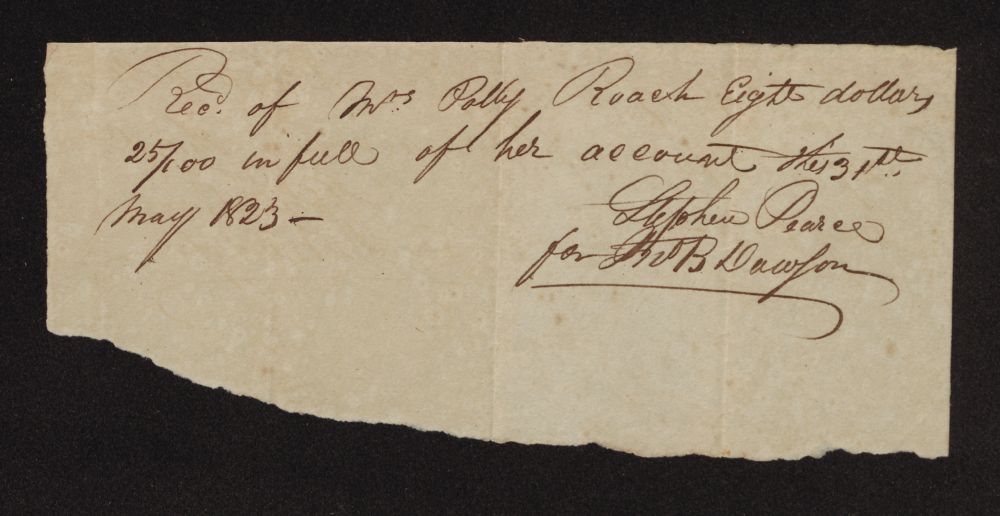 Recd. of Mrs Polly Roach Eight dollars
25/100 in full of her account this 31st.
May 1823 —
Stephen Pearce
for Thos B Dawson